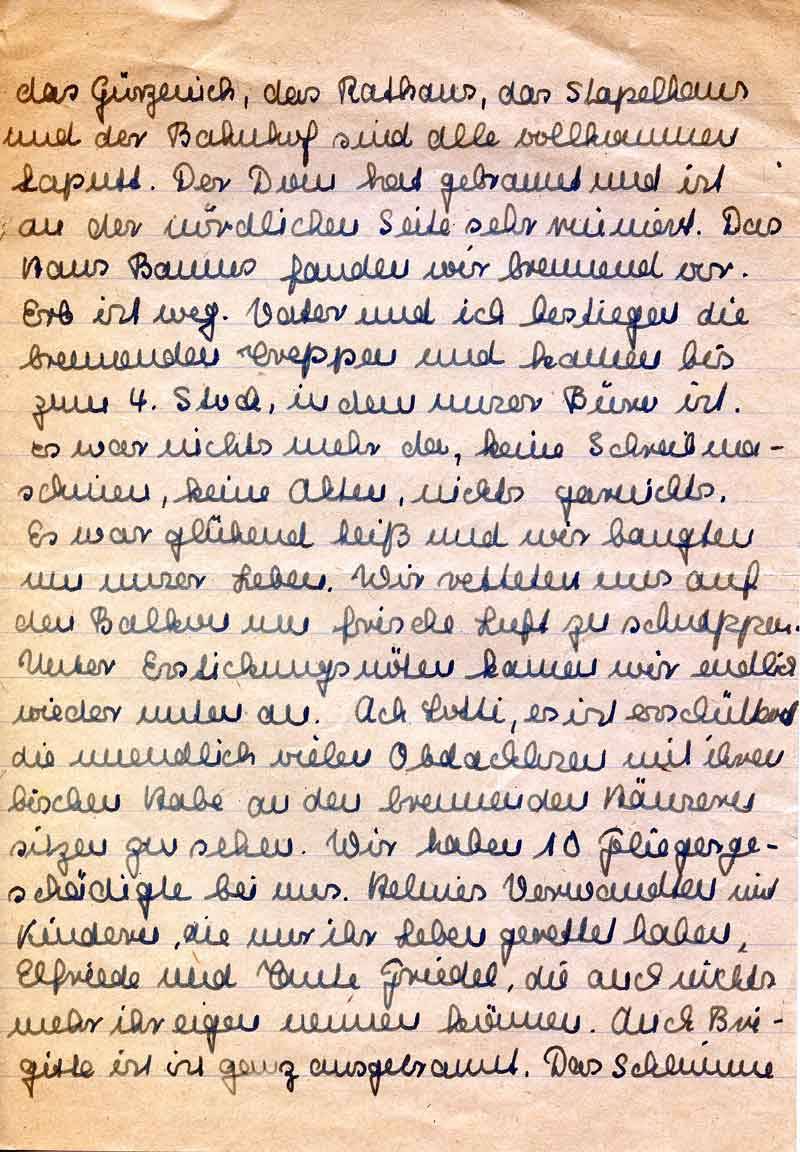 das Gürzenich, das Rathaus, das Stapelhaus
und der Bahnhof sind alle vollkommen
kaputt. Der Dom hat gebrannt und ist
an der nördlichen Seite sehr ruiniert. Das
Haus Baums fanden wir brennend vor.
Erb ist weg. Vater und ich bestiegen die
brennenden Treppen und kamen bis
zum 4. Stock, in dem unser Büro ist.
Es war nichts mehr da, keine Schreibma-
schinen, keine Akten, nichts garnichts.
Es war glühend heiß und wir bangten
um unser Leben. Wir retteten uns auf
den Balkon um frische Luft zu schnappen.
Unter Erstickungsnöten kamen wir endlich
wieder unten an. Ach Lotti, es ist erschütternd
die unendlich vielen Obdachlosen mit ihren
bischen Habe an den brennenden Häusern
sitzen zu sehen. Wir haben 10 Fliegerge-
schädigte bei uns. Helmes Verwandten mit
Kindern, die nur ihr Leben gerettet haben,
Elfriede und Tante Friedel, die auch nichts
mehr ihr eigen nennen können. Auch Bri-
gitte ist ist ganz ausgebrannt. Das Schlimme